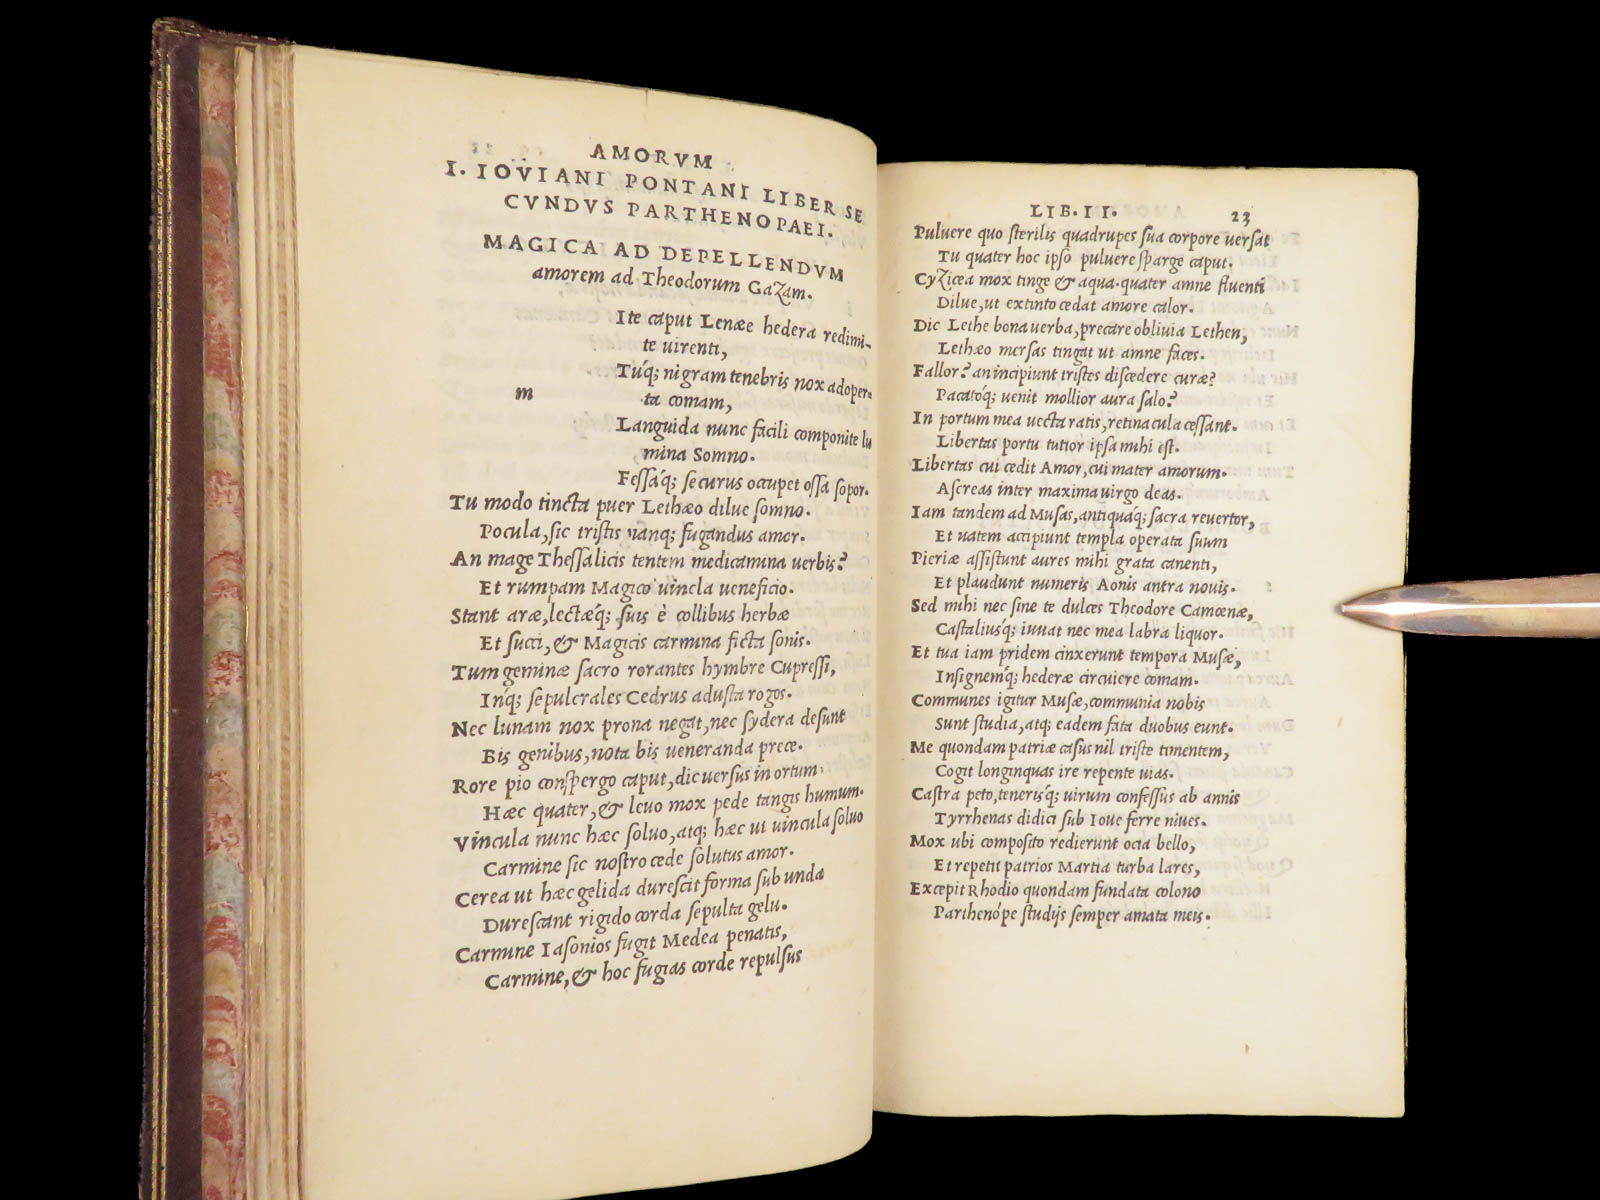 AMORVM
I. IOVIANI PONTANI LIBER SE
CVNDVS PARTHENOPAEI.
MAGICA AD DEPELLENDVM
amorem ad Theodorum Gazam.
Ite caput Lenæe hedera redimi-
te uirenti,
Túq; nigram tenebris nox adoper-
m
ta comam,
Languida nunc facili componite lu
mina Somno.
Fessáq; securus occupet ossa sopor.
Tu modo tincta puer Lethæo dilue somno.
Pocula, sic tristis nanq; fugandus amor.
An mage Thessalicis tentem medicamina uerbis?
Et rumpam Magico uincla ueneficio.
Stant aræ, lectæq́; suis è collibus herbæ
Et succi, & Magicis carmina ficta sonis.
Tum geminæ sacro rorantes hymbre Cupressi,
Inq́; sepulcrales Cedrus adusta rogos.
Nec lunam nox prona negat, nec sydera desunt
Bis genibus, nota bis ueneranda prece.
Rore pio conspergo caput, dic uersus in ortum
Hæc quater, & leuo mox pede tangis humum.
Vincula nunc hæc soluo, atq; hæc ut uincula soluo
Carmine sic nostro cede solutus amor.
Cerea ut hæc gelida durescit forma sub unda
Durescant rigido corda sepulta gelu.
Carmine Iasonios fugit Medea penatis,
Carmine, & hoc fugias corde repulsus
LIB. II. 23
Puluere quo sterilis quadrupes sua corpore uersat
Tu quater hoc ipso puluere sparge caput.
Cyzicea mox tinge & aqua. quater amne fluenti
Dilue, ut extinto cedat amore calor.
Dic Lethe bona uerba, precare obliuia Lethen,
Lethæo mersas tingat ut amne faces.
Fallor? an incipiunt tristes discedere curæ?
Pacatóq; uenit mollior aura salo?
In portum mea uecta ratis, retinacula cessant.
Libertas portu tutior ipsa mihi est.
Libertas cui cedit Amor, cui mater amorum.
Ascreas inter maxima uirgo deas.
Iam tandem ad Musas, antiquáq; sacra reuertor,
Et uatem accipiunt templa operata suum
Pieriæ assistunt aures mihi grata canenti,
Et plaudunt numeris Aonis antra nouis.
Sed mihi nec sine te dulces Theodore Camœnæ,
Castaliusq́; iuuat nec mea labra liquor.
Et tua iam pridem cinxerunt tempora Musæ,
Insignemq́; hederæ circuiere comam.
Communes igitur Musæ, communia nobis
Sunt studia, atq; eadem fata duobus eunt.
Me quondam patriæ casus nil triste timentem,
Cogit longinquas ire repente uias.
Castra peto, tenerisq́; uirum confessus ab annis
Tyrrhenas didici sub Ioue ferre niues.
Mox ubi composito redierunt ocia bello,
Et repetit patrios Martia turba lares,
Excepit Rhodio quondam fundata colono
Parthenópe studijs semper amata meis.